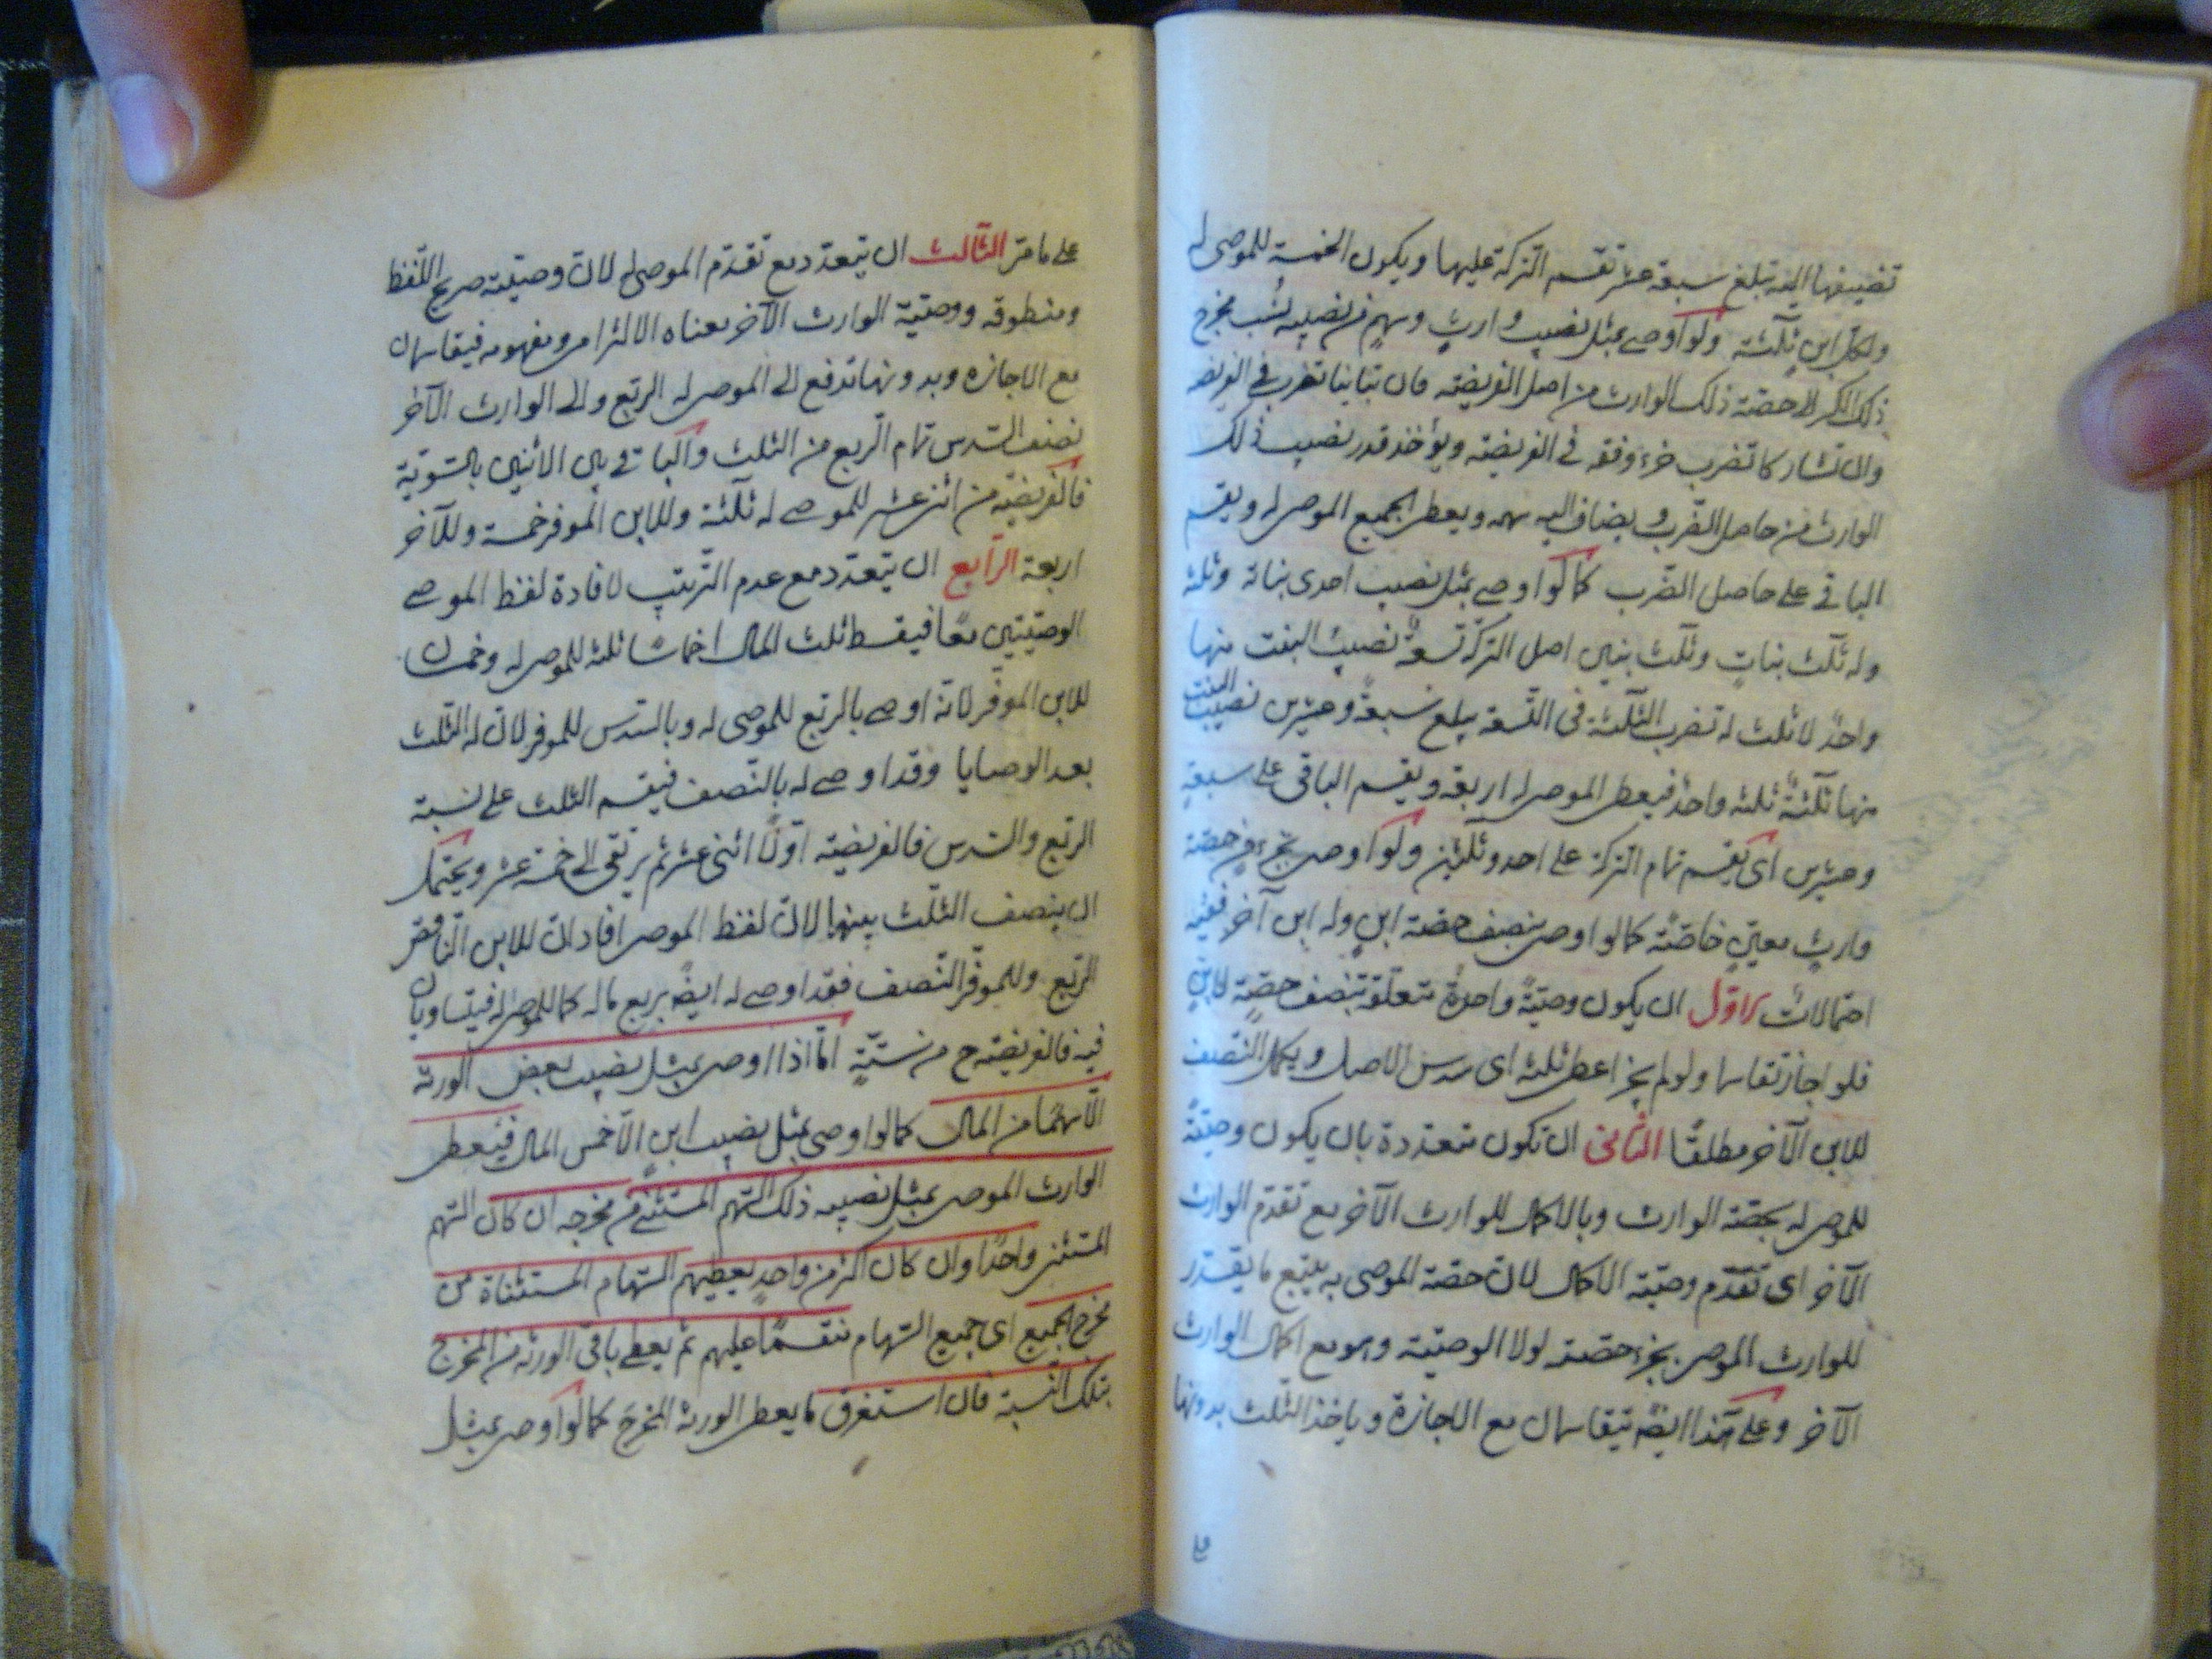 تضيفها اليه تبلغ سبعة عشر تقسم التركة عليها ويكون الخمسة للموصى له
ولكل ابن ثلثة ولو اوصى بمثل نصيب وارث وسهم من نصيبه نسب مخرج
ذلك الكسر لا حصة ذلك الوارث من اصل الفريضه فان تباينا تضرب في الفريضه
وان تشاركا تضرب جزء وفقه في الفريضه ويؤخذ قدر نصيب ذلك
الوارث من حاصل الضرب و يضاف اليه سهمه ويعطى الجميع الموصى له ويقسم
الباقي على حاصل الضرب كما لو اوصى بمثل نصيب احدى بناته وثلثه
وله ثلث بنات وثلث بنين اصل التركة تسعة نصيب البنت منها
واحد لا ثلث له تضرب الثلثة في التسعة يبلغ سبعة وعشرين نصيب البنت
منها ثلثة ثلثه واحد فيعطى الموصى له اربعة ويقسم الباقى على سبعة
وعشرين اى يقسم تمام التركة على احد وثلثين ولو اوصى بجزء من حصة
وارث معين خاصة كما لو اوصى بنصف حصة ابن وله ابن آخر ففيه
احتمالات الاول ان يكون وصية واحدة متعلقة بنصف حصة الابن
فلو اجاز تقاسما ولو لم يجز اعطى ثلثه اى سدس الاصل ويكمل النصف
للابن الآخر مطلقا الثانى ان تكون متعددة بان يكون وصية
للموصى له بحصة الوارث وبالاكمال للوارث الآخر مع تقدم الوارث
الآخر اى تقدم وصية الاكمال لان حصة الموصى به يتبع ما يقدر
للوارث الموصى بجزء حصته لولا الوصية وهو مع اكمال الوارث
الآخر وعلى هذا ايضا يتقاسمان مع الاجازة وياخذ الثلث بدونها
على ما مر الثالث ان يتعدد مع تقدم الموصى له لان وصيته صريح اللفظ
ومنطوقه ووصية الوارث الآخر معناه الالتزامى ومفهومه فيقاسمان
مع الاجازه وبدونها تدفع الى الموصى له الربع والى الوارث الآخر
نصف السدس تمام الربع من الثلث والباقي بين الاثنين بالسوية
فالفريضة من اثنى عشر للموصى له ثلثة وللابن الموفر خمسة وللآخر
اربعة الرابع ان يتعدد مع عدم الترتيب لافادة لفظ الموصى
الوصيتين معا فيقسط ثلث المال اخماسا ثلثه للموصى له وخمسان
للابن الموفر لانه اوصى بالربع للموصى له وبالسدس للموفر لان له الثلث
بعد الوصايا وقد اوصى له بالنصف فيقسم الثلث على نسبة
الربع والسدس فالفريضة اولا اثنى عشر ثم يرتقى الى خمسة عشر ويحتمل
ان ينصف الثلث بينهما لان لفظ الموصى افاد ان للابن الناقص
الربع وللموفر النصف فقد اوصى له ايضا بربع ماله كما للموصى له فيتساويان
فيه فالفريضه ح من ستة اما اذا اوصى بمثل نصيب بعض الورثه
الا سهما من المال كما لو اوصى بمثل نصيب ابن الا خمس المال فيعطى
الوارث الموصى بمثل نصيبه ذلك السهم المستثنى من مخرجه ان كان السهم
المستثنى واحدا وان كان اكثر من واحد يعطيهم السهام المستثناة من
مخرج الجميع اى جميع السهام منقسما عليهم ثم يعطى باقى الورثه من المخرج
بتلك النسبة فان استغرق ما يعطى الورثه المخرج كما لو اوصى بمثل